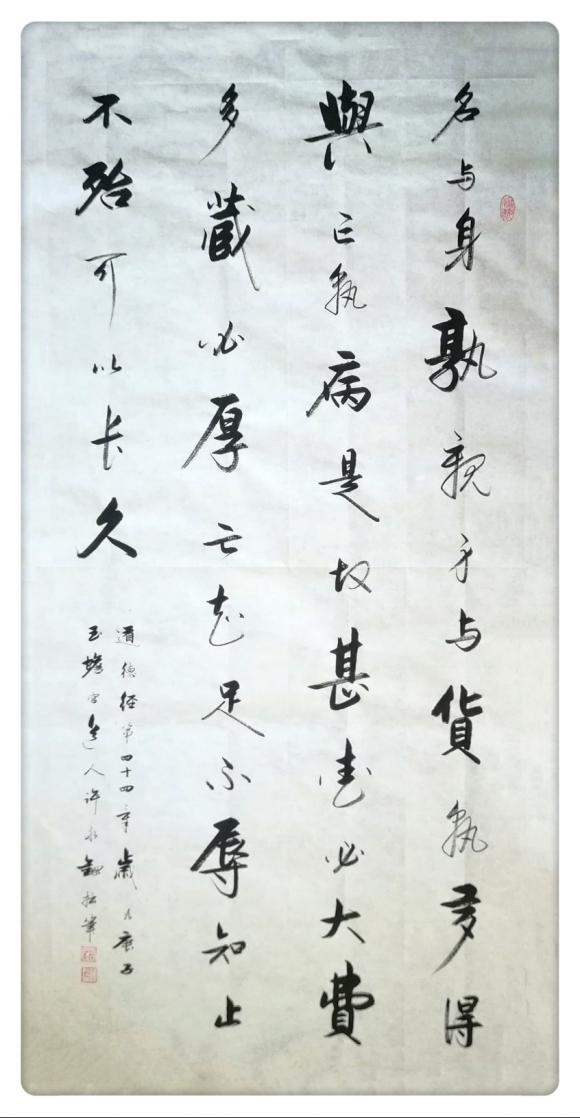 名与身孰親身与貨孰多得
與亡孰病是故甚愛必大費
多藏必厚亡知足不辱知止
不殆可以长久
道德经第四十四章歲庚子
玉蟾宫道人许拙筆